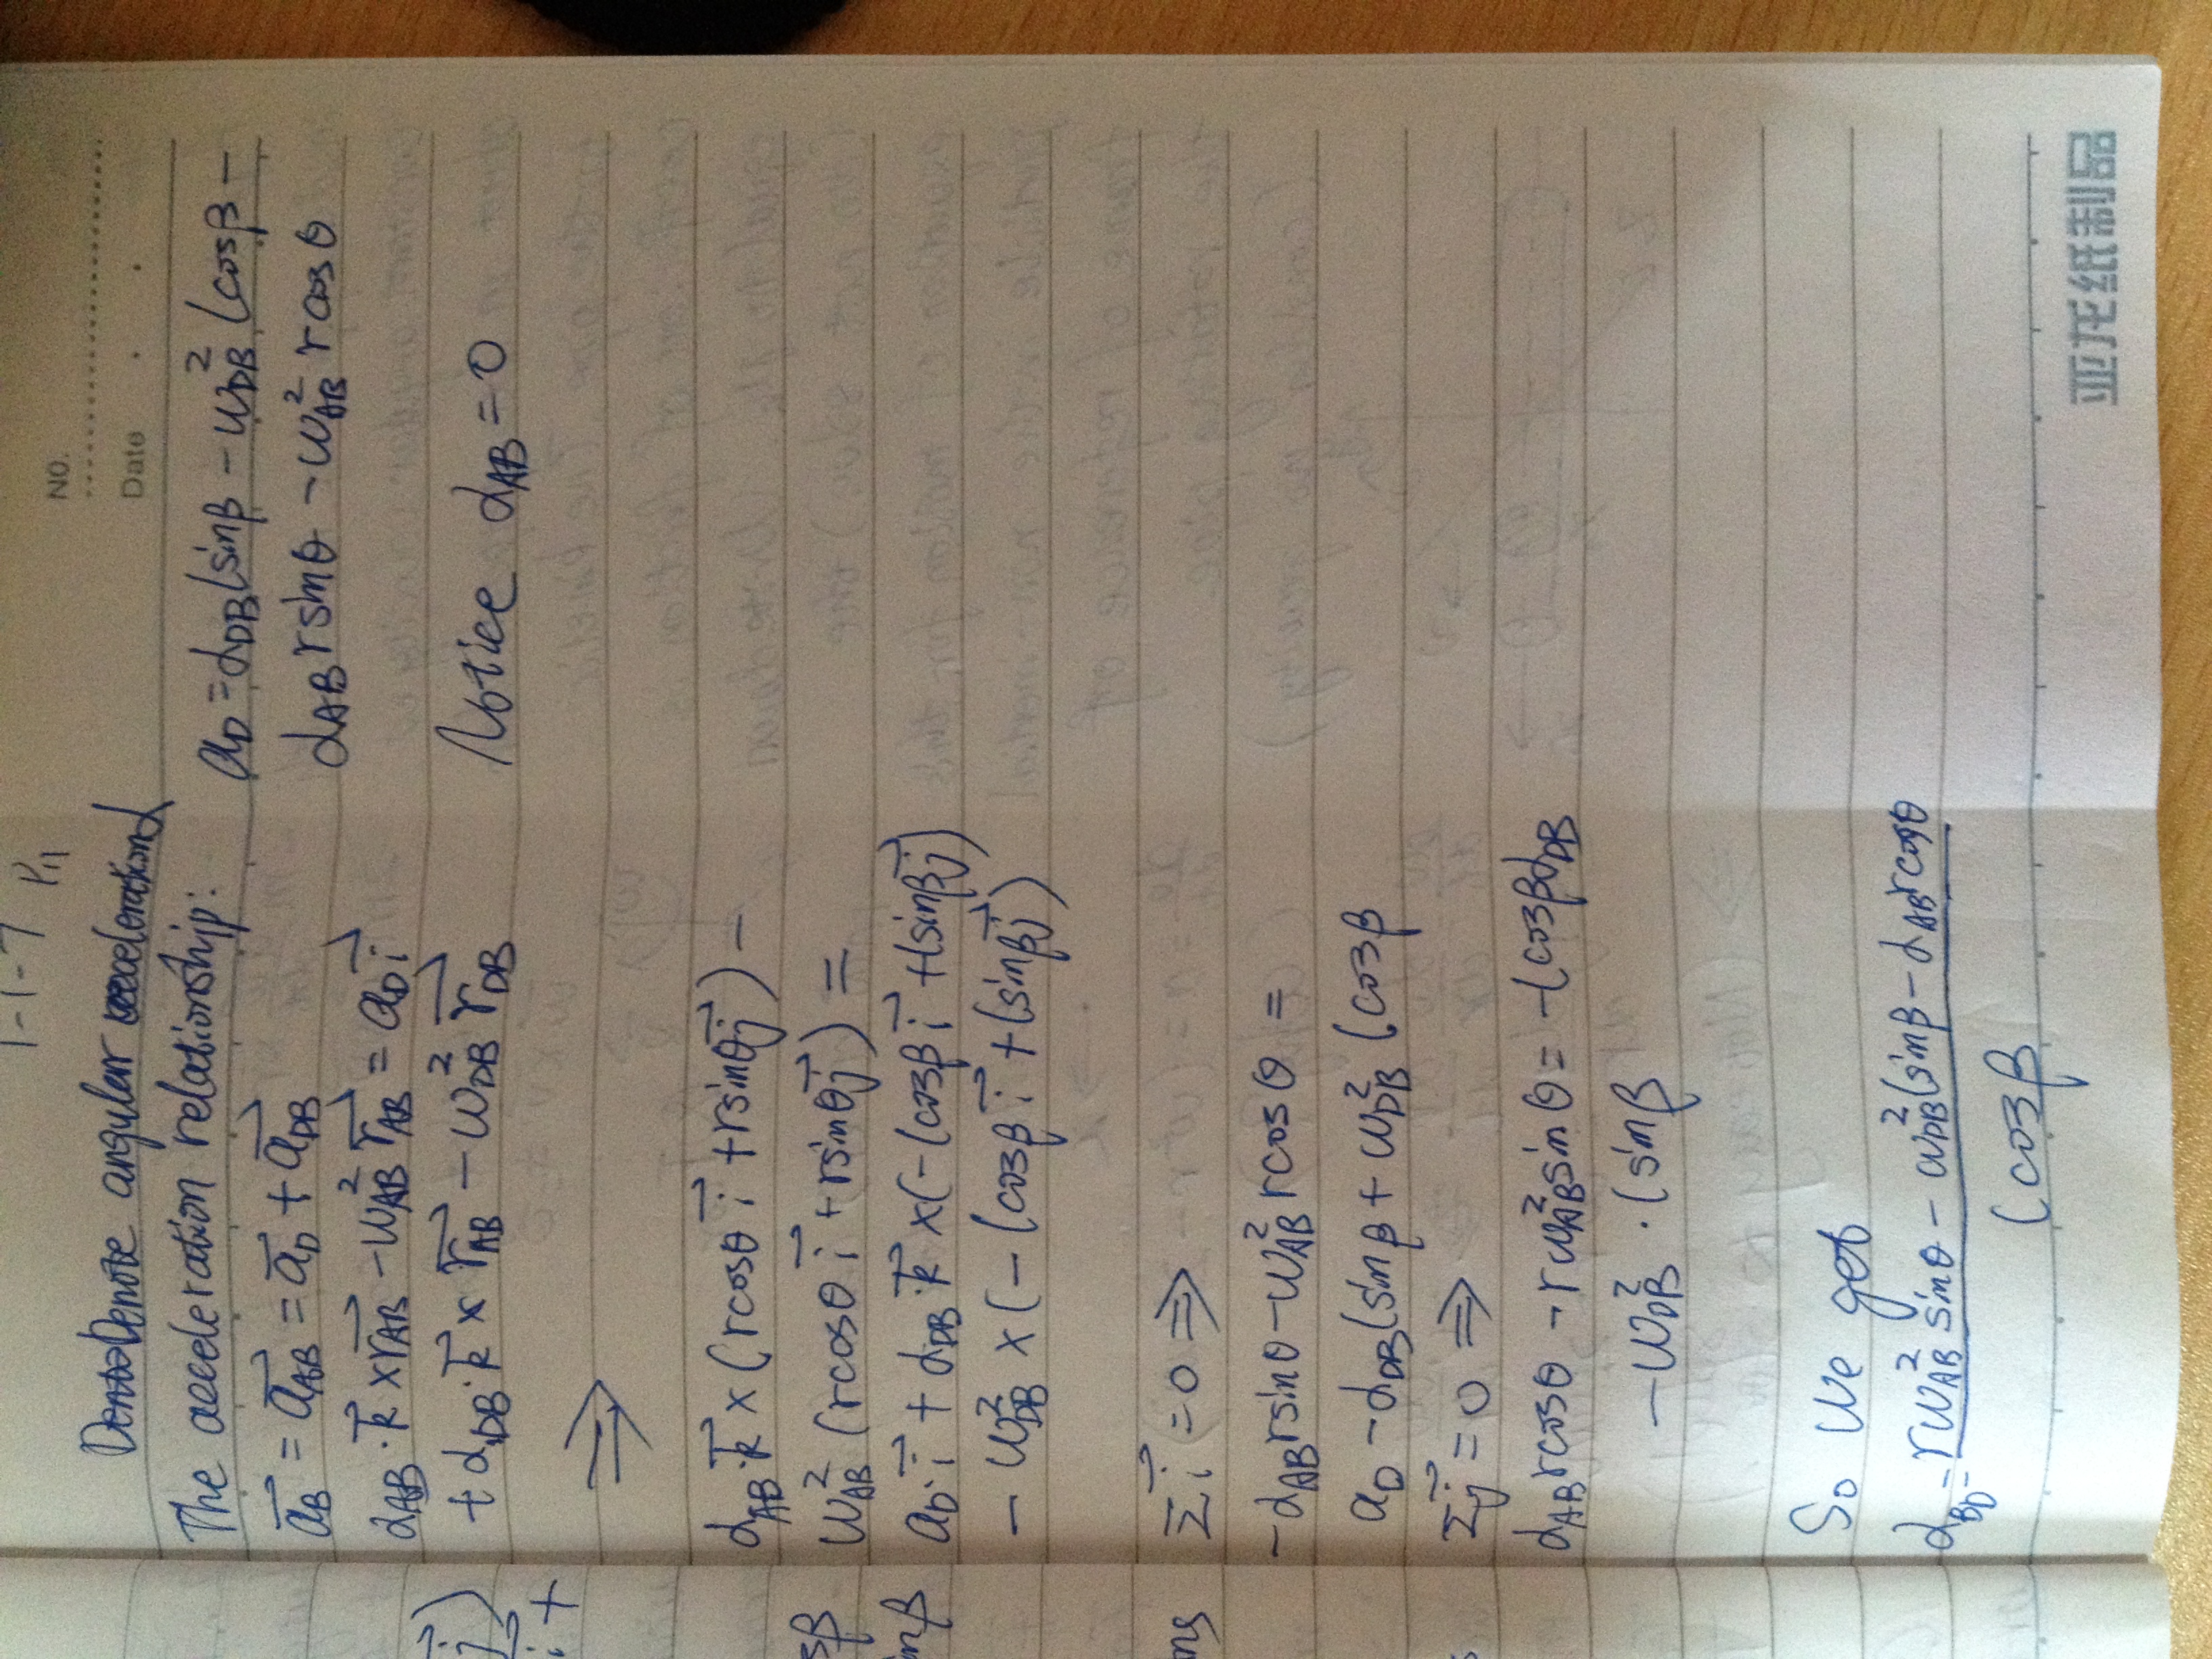 1-1-7 P11
NO.
Date
Denote angular acceleration α
The acceleration relationship:
a⃗_B = a⃗_AB = a⃗_D + a⃗_DB
α_AB · k⃗ × r⃗_AB − ω²_AB r⃗_AB = a_D i⃗
+ α_DB · k⃗ × r⃗_AB − ω²_DB r⃗_DB
⇒
α_AB · k⃗ × (rcosθ i⃗ + rsinθ j⃗) −
ω²_AB (rcosθ i⃗ + rsinθ j⃗) =
a_D · i⃗ + α_DB · k⃗ × (−lcosβ i⃗ + lsinβ j⃗)
− ω²_DB × (−lcosβ i⃗ + lsinβ j⃗)
Σi⃗ = 0 ⇒
−α_AB rsinθ − ω²_AB rcosθ =
a_D − α_DB lsinβ + ω²_DB lcosβ
Σj⃗ = 0 ⇒
α_AB rcosθ − rω²_AB sinθ = −lcosβ α_DB
− ω²_DB · lsinβ
So We get
α_BD = (rω²_AB sinθ − ω²_DB lsinβ − α_AB rcosθ) /
lcosβ
a_D = α_DB lsinβ − ω²_DB lcosβ −
α_AB rsinθ − ω²_AB rcosθ
Notice α_AB = 0
亚龙纸制品